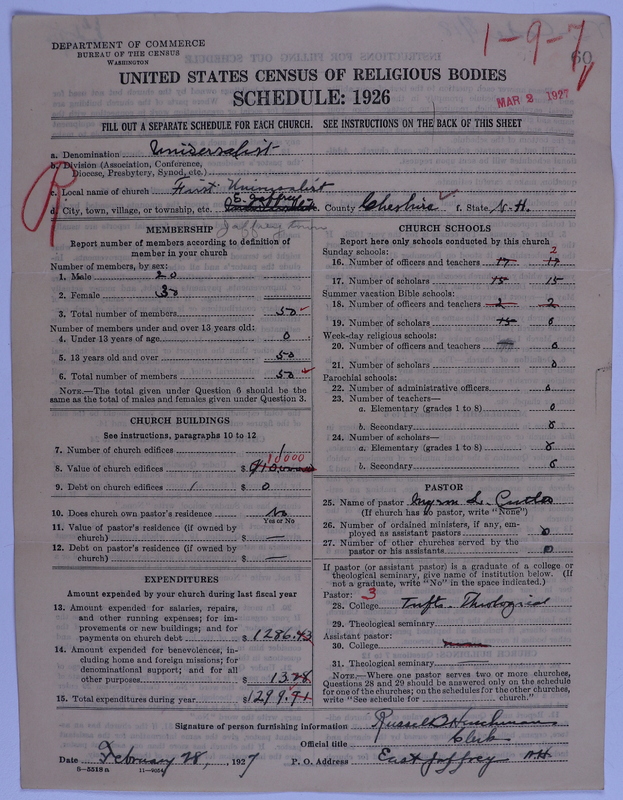 1-9-7
60
DEPARTMENT OF COMMERCE
BUREAU OF THE CENSUS
WASHINGTON
UNITED STATES CENSUS OF RELIGIOUS BODIES
SCHEDULE: 1926
MAR 2 1927
FILL OUT A SEPARATE SCHEDULE FOR EACH CHURCH. SEE INSTRUCTIONS ON THE BACK OF THIS SHEET
a. Denomination Universalist
b. Division (Association, Conference, Diocese, Presbytery, Synod, etc.)
c. Local name of church First Universalist
d. City, town, village, or township, etc. E. Jaffrey County Cheshire f. State N. H.
Jaffrey town
MEMBERSHIP
Report number of members according to definition of member in your church
Number of members, by sex:
1. Male 20
2. Female 30
3. Total number of members 50
Number of members under and over 13 years old:
4. Under 13 years of age 0
5. 13 years old and over 50
6. Total number of members 50
NOTE.—The total given under Question 6 should be the same as the total of males and females given under Question 3.
CHURCH BUILDINGS
See instructions, paragraphs 10 to 12
7. Number of church edifices 1
8. Value of church edifices $ 10000
9. Debt on church edifices $ 0
10. Does church own pastor's residence No
Yes or No
11. Value of pastor's residence (if owned by church) $ —
12. Debt on pastor's residence (if owned by church) $ —
EXPENDITURES
Amount expended by your church during last fiscal year
13. Amount expended for salaries, repairs, and other running expenses; for improvements or new buildings; and for payments on church debt $ 1286.43
14. Amount expended for benevolences, including home and foreign missions; for denominational support; and for all other purposes $ 13.28
15. Total expenditures during year $ 1299.71
CHURCH SCHOOLS
Report here only schools conducted by this church
Sunday schools:
2
16. Number of officers and teachers 17
17. Number of scholars 15 15
Summer vacation Bible schools:
18. Number of officers and teachers 2 2
19. Number of scholars 15 0
Week-day religious schools:
20. Number of officers and teachers 0
21. Number of scholars 0
Parochial schools:
22. Number of administrative officers 0
23. Number of teachers—
a. Elementary (grades 1 to 8) 0
b. Secondary 0
24. Number of scholars—
a. Elementary (grades 1 to 8) 0
b. Secondary 0
PASTOR
25. Name of pastor Myron L. Cutler
(If church has no pastor, write "None")
26. Number of ordained ministers, if any, employed as assistant pastors 0
27. Number of other churches served by the pastor or his assistants 0
If pastor (or assistant pastor) is a graduate of a college or theological seminary, give name of institution below. (If not a graduate, write "No" in the space indicated.)
Pastor: 3
28. College Tufts Theological
29. Theological seminary
Assistant pastor:
30. College
31. Theological seminary
NOTE.—Where one pastor serves two or more churches, Questions 28 and 29 should be answered only on the schedule for one of the churches; on the schedules for the other churches, write "See schedule for church."
Signature of person furnishing information Russell Henchman
Official title Clerk
Date February 28, 1927 P. O. Address East Jaffrey NH
8-5518 a 11-9554